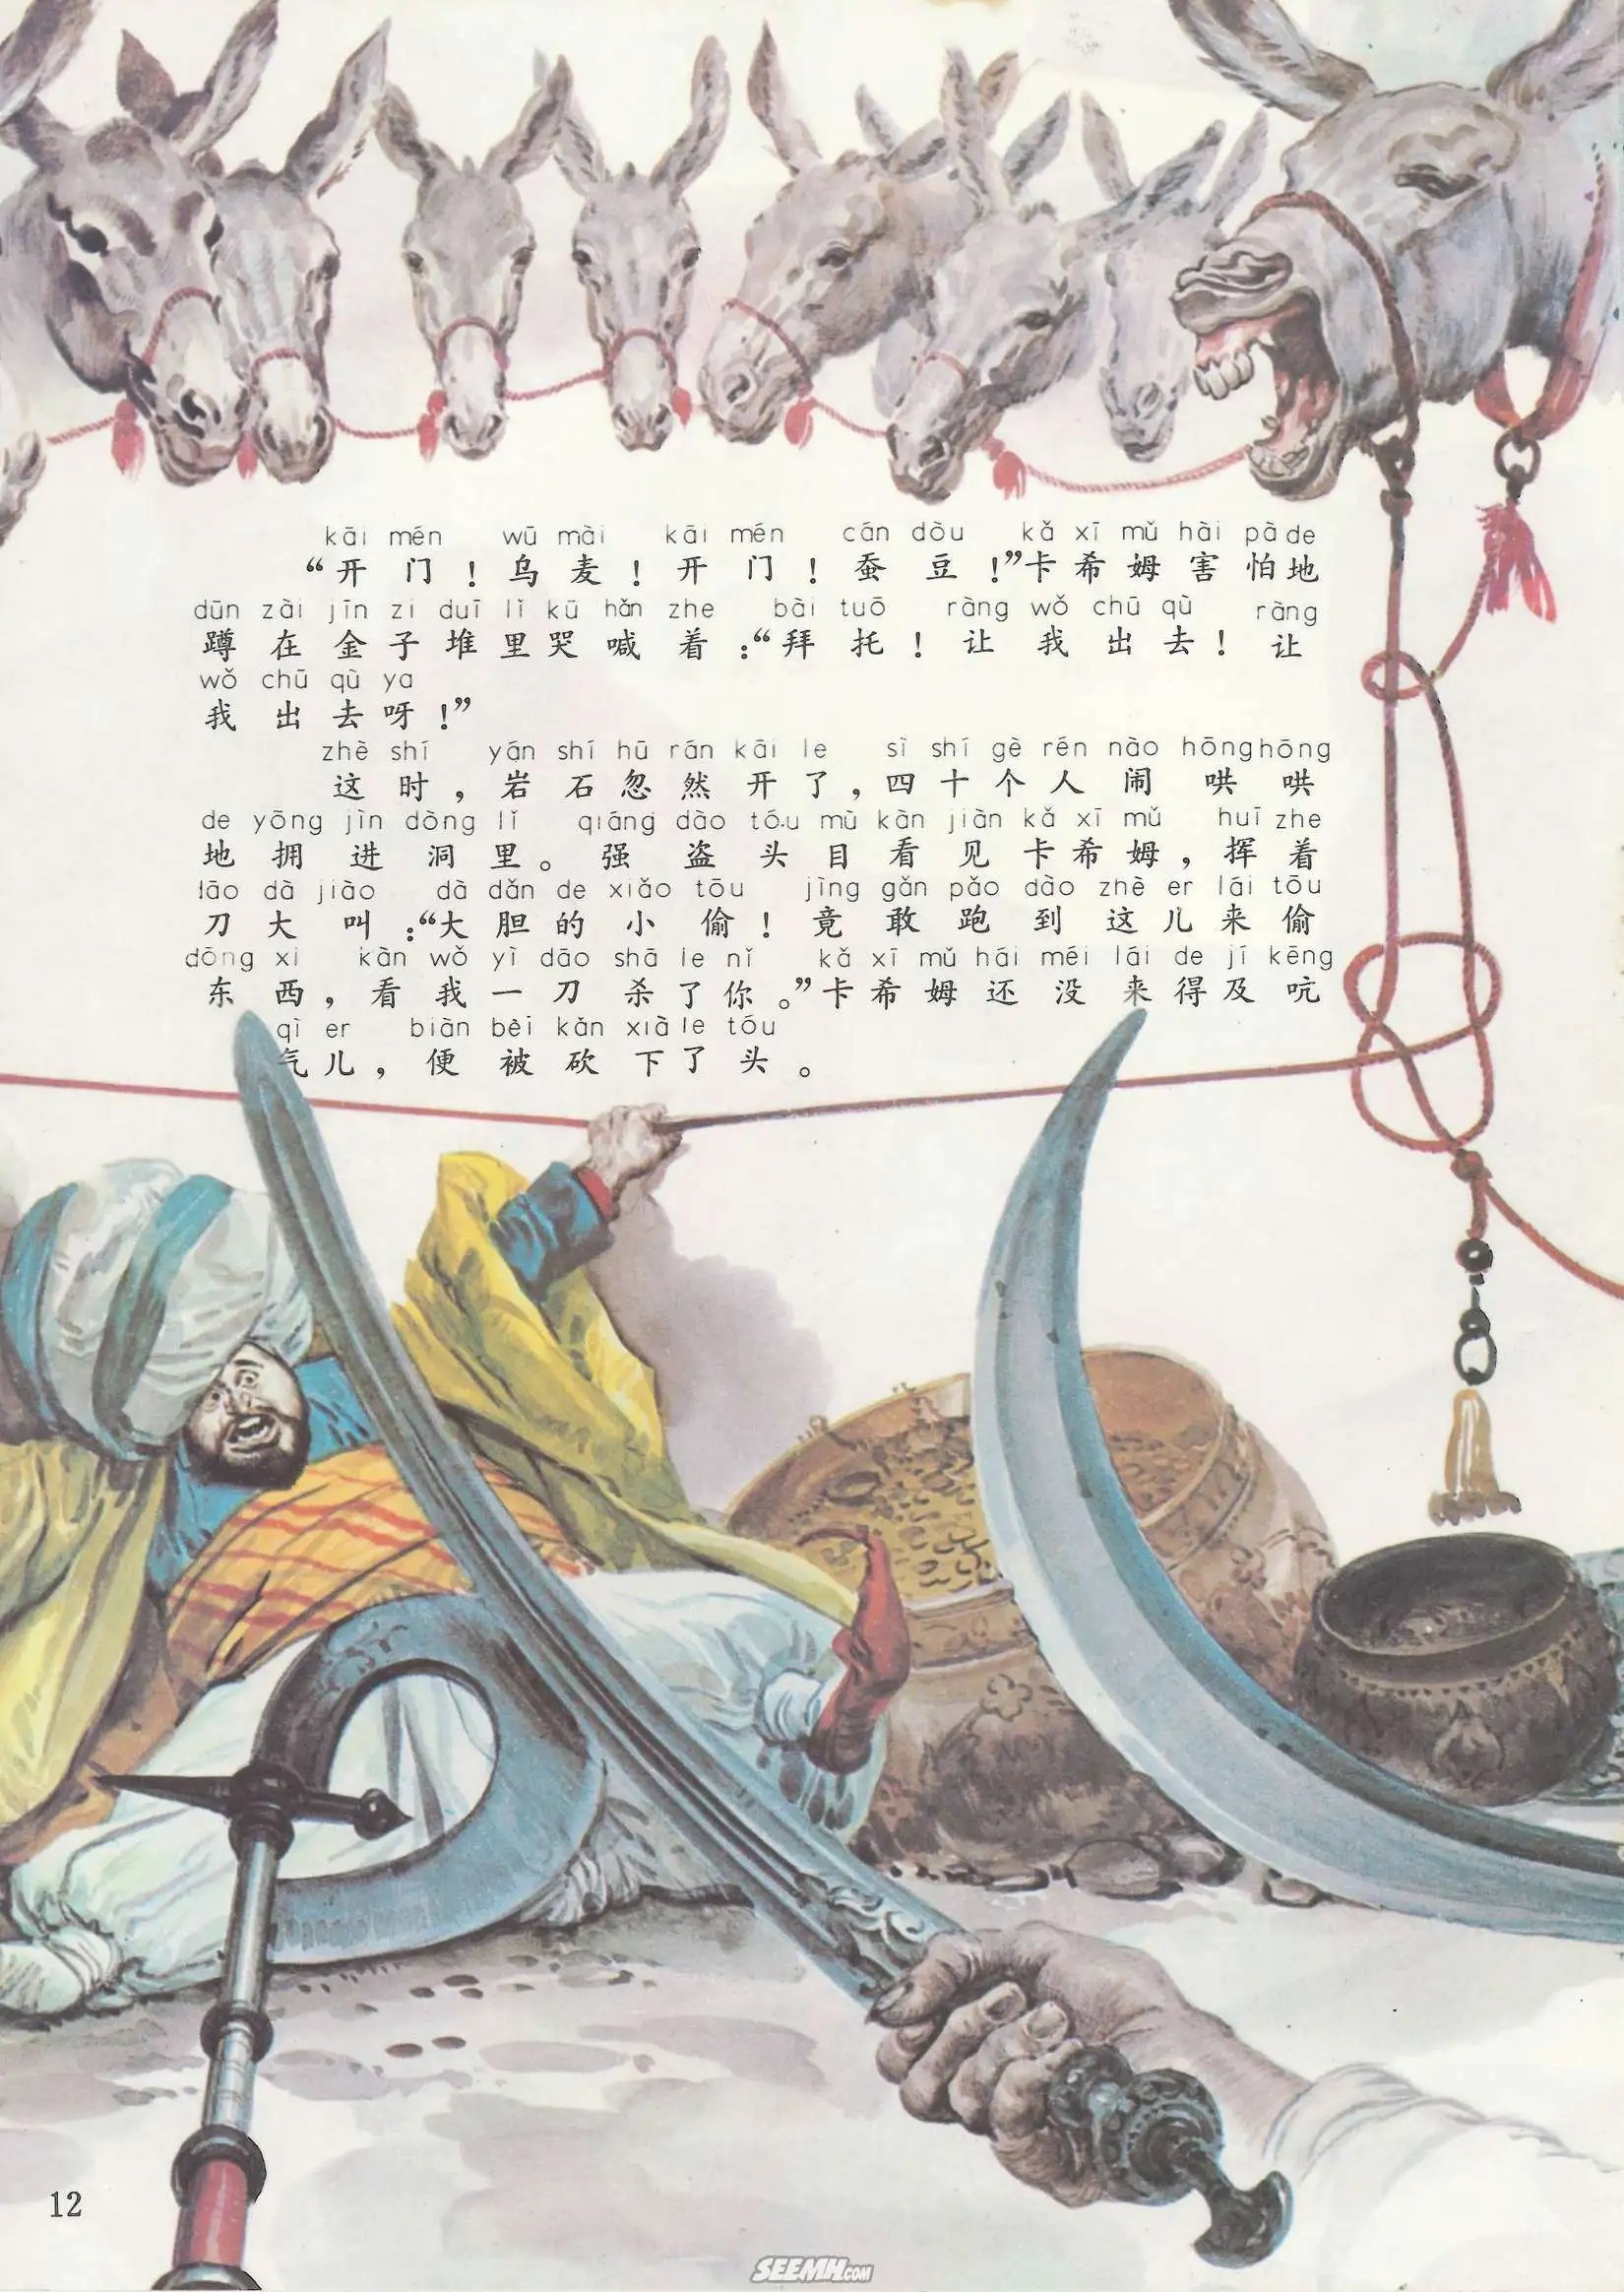 kāi mén wū mài kāi mén cán dòu kǎ xī mǔ hài pà de
“开门！乌麦！开门！蚕豆！”卡希姆害怕地
dūn zài jīn zi duī lǐ kū hǎn zhe bài tuō ràng wǒ chū qù ràng
蹲在金子堆里哭喊着：“拜托！让我出去！让
wǒ chū qù ya
我出去呀！”
zhè shí yán shí hū rán kāi le sì shí gè rén nào hōng hōng
这时，岩石忽然开了，四十个人闹哄哄
de yōng jìn dòng lǐ qiáng dào tóu mù kàn jiàn kǎ xī mǔ huī zhe
地拥进洞里。强盗头目看见卡希姆，挥着
dāo dà jiào dà dǎn de xiǎo tōu jìng gǎn pǎo dào zhè er lái tōu
刀大叫：“大胆的小偷！竟敢跑到这儿来偷
dōng xi kàn wǒ yì dāo shā le nǐ kǎ xī mǔ hái méi lái de jí kēng
东西，看我一刀杀了你。”卡希姆还没来得及吭
qì er biàn bèi kǎn xià le tóu
气儿，便被砍下了头。
12
SEEMH.COM